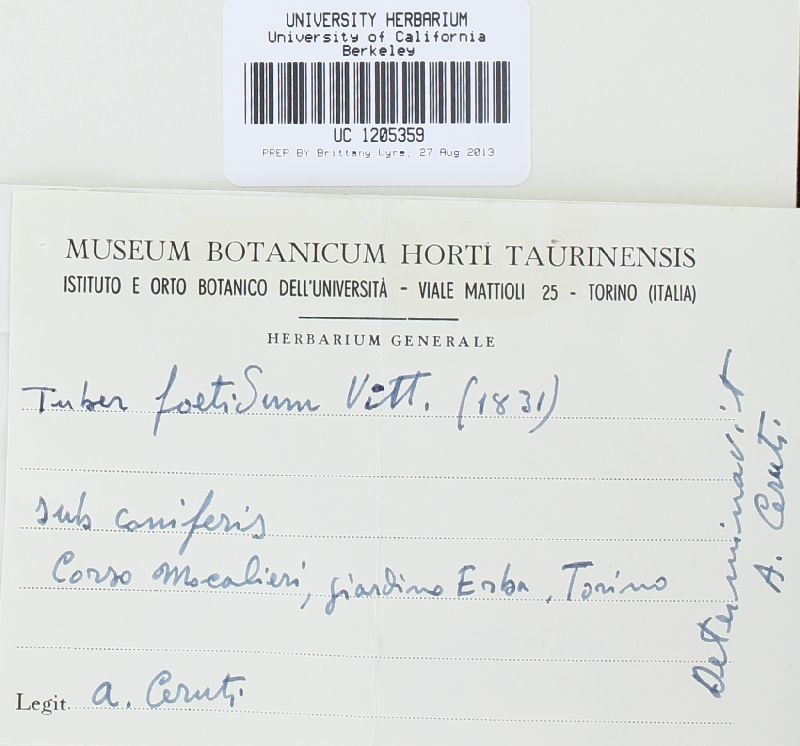 UNIVERSITY HERBARIUM
University of California
Berkeley
UC 1205359
PREP BY Brittany Wyre, 27 Aug 2013
MUSEUM BOTANICUM HORTI TAURINENSIS
ISTITUTO E ORTO BOTANICO DELL'UNIVERSITÀ - VIALE MATTIOLI 25 - TORINO (ITALIA)
HERBARIUM GENERALE
Tuber foetidum Vitt. (1831)
sub coniferis
Corso Mocalieri, giardino Erba, Torino
Legit. A. Ceruti
Determinavit
A. Ceruti